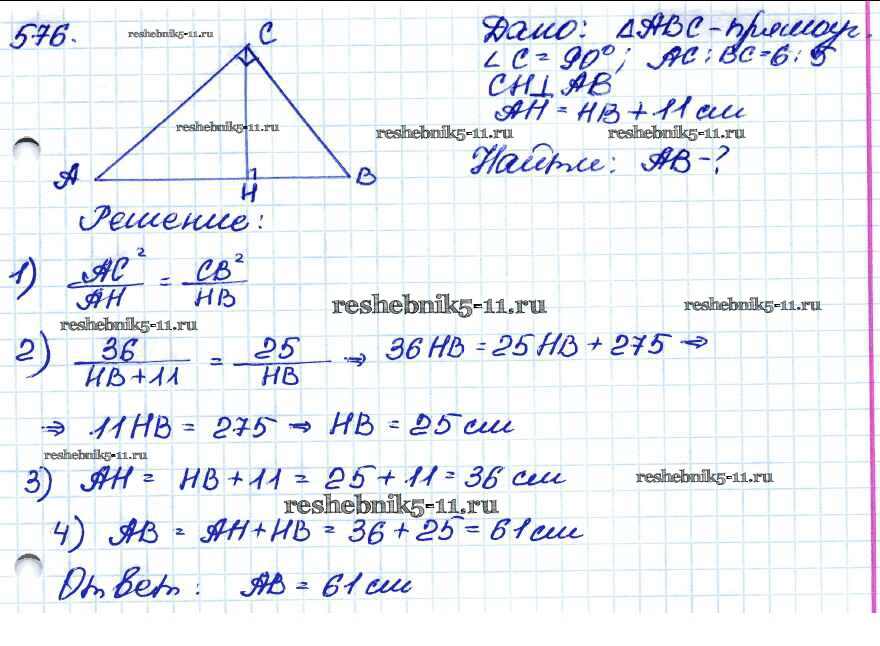 576.
reshebnik5-11.ru
C
Дано: △ABC - прямоуг.
∠C = 90°; AC : BC = 6 : 5
CH⊥AB
reshebnik5-11.ru
reshebnik5-11.ru
reshebnik5-11.ru
AH = HB + 11 см
Найти: AB - ?
A
H
B
Решение:
1) AC²/AH = CB²/HB
reshebnik5-11.ru
reshebnik5-11.ru
reshebnik5-11.ru
2) 36/HB+11 = 25/HB ⇒ 36HB = 25HB + 275 ⇒
⇒ 11HB = 275 ⇒ HB = 25 см
reshebnik5-11.ru
3) AH = HB + 11 = 25 + 11 = 36 см
reshebnik5-11.ru
reshebnik5-11.ru
4) AB = AH + HB = 36 + 25 = 61 см
Ответ: AB = 61 см